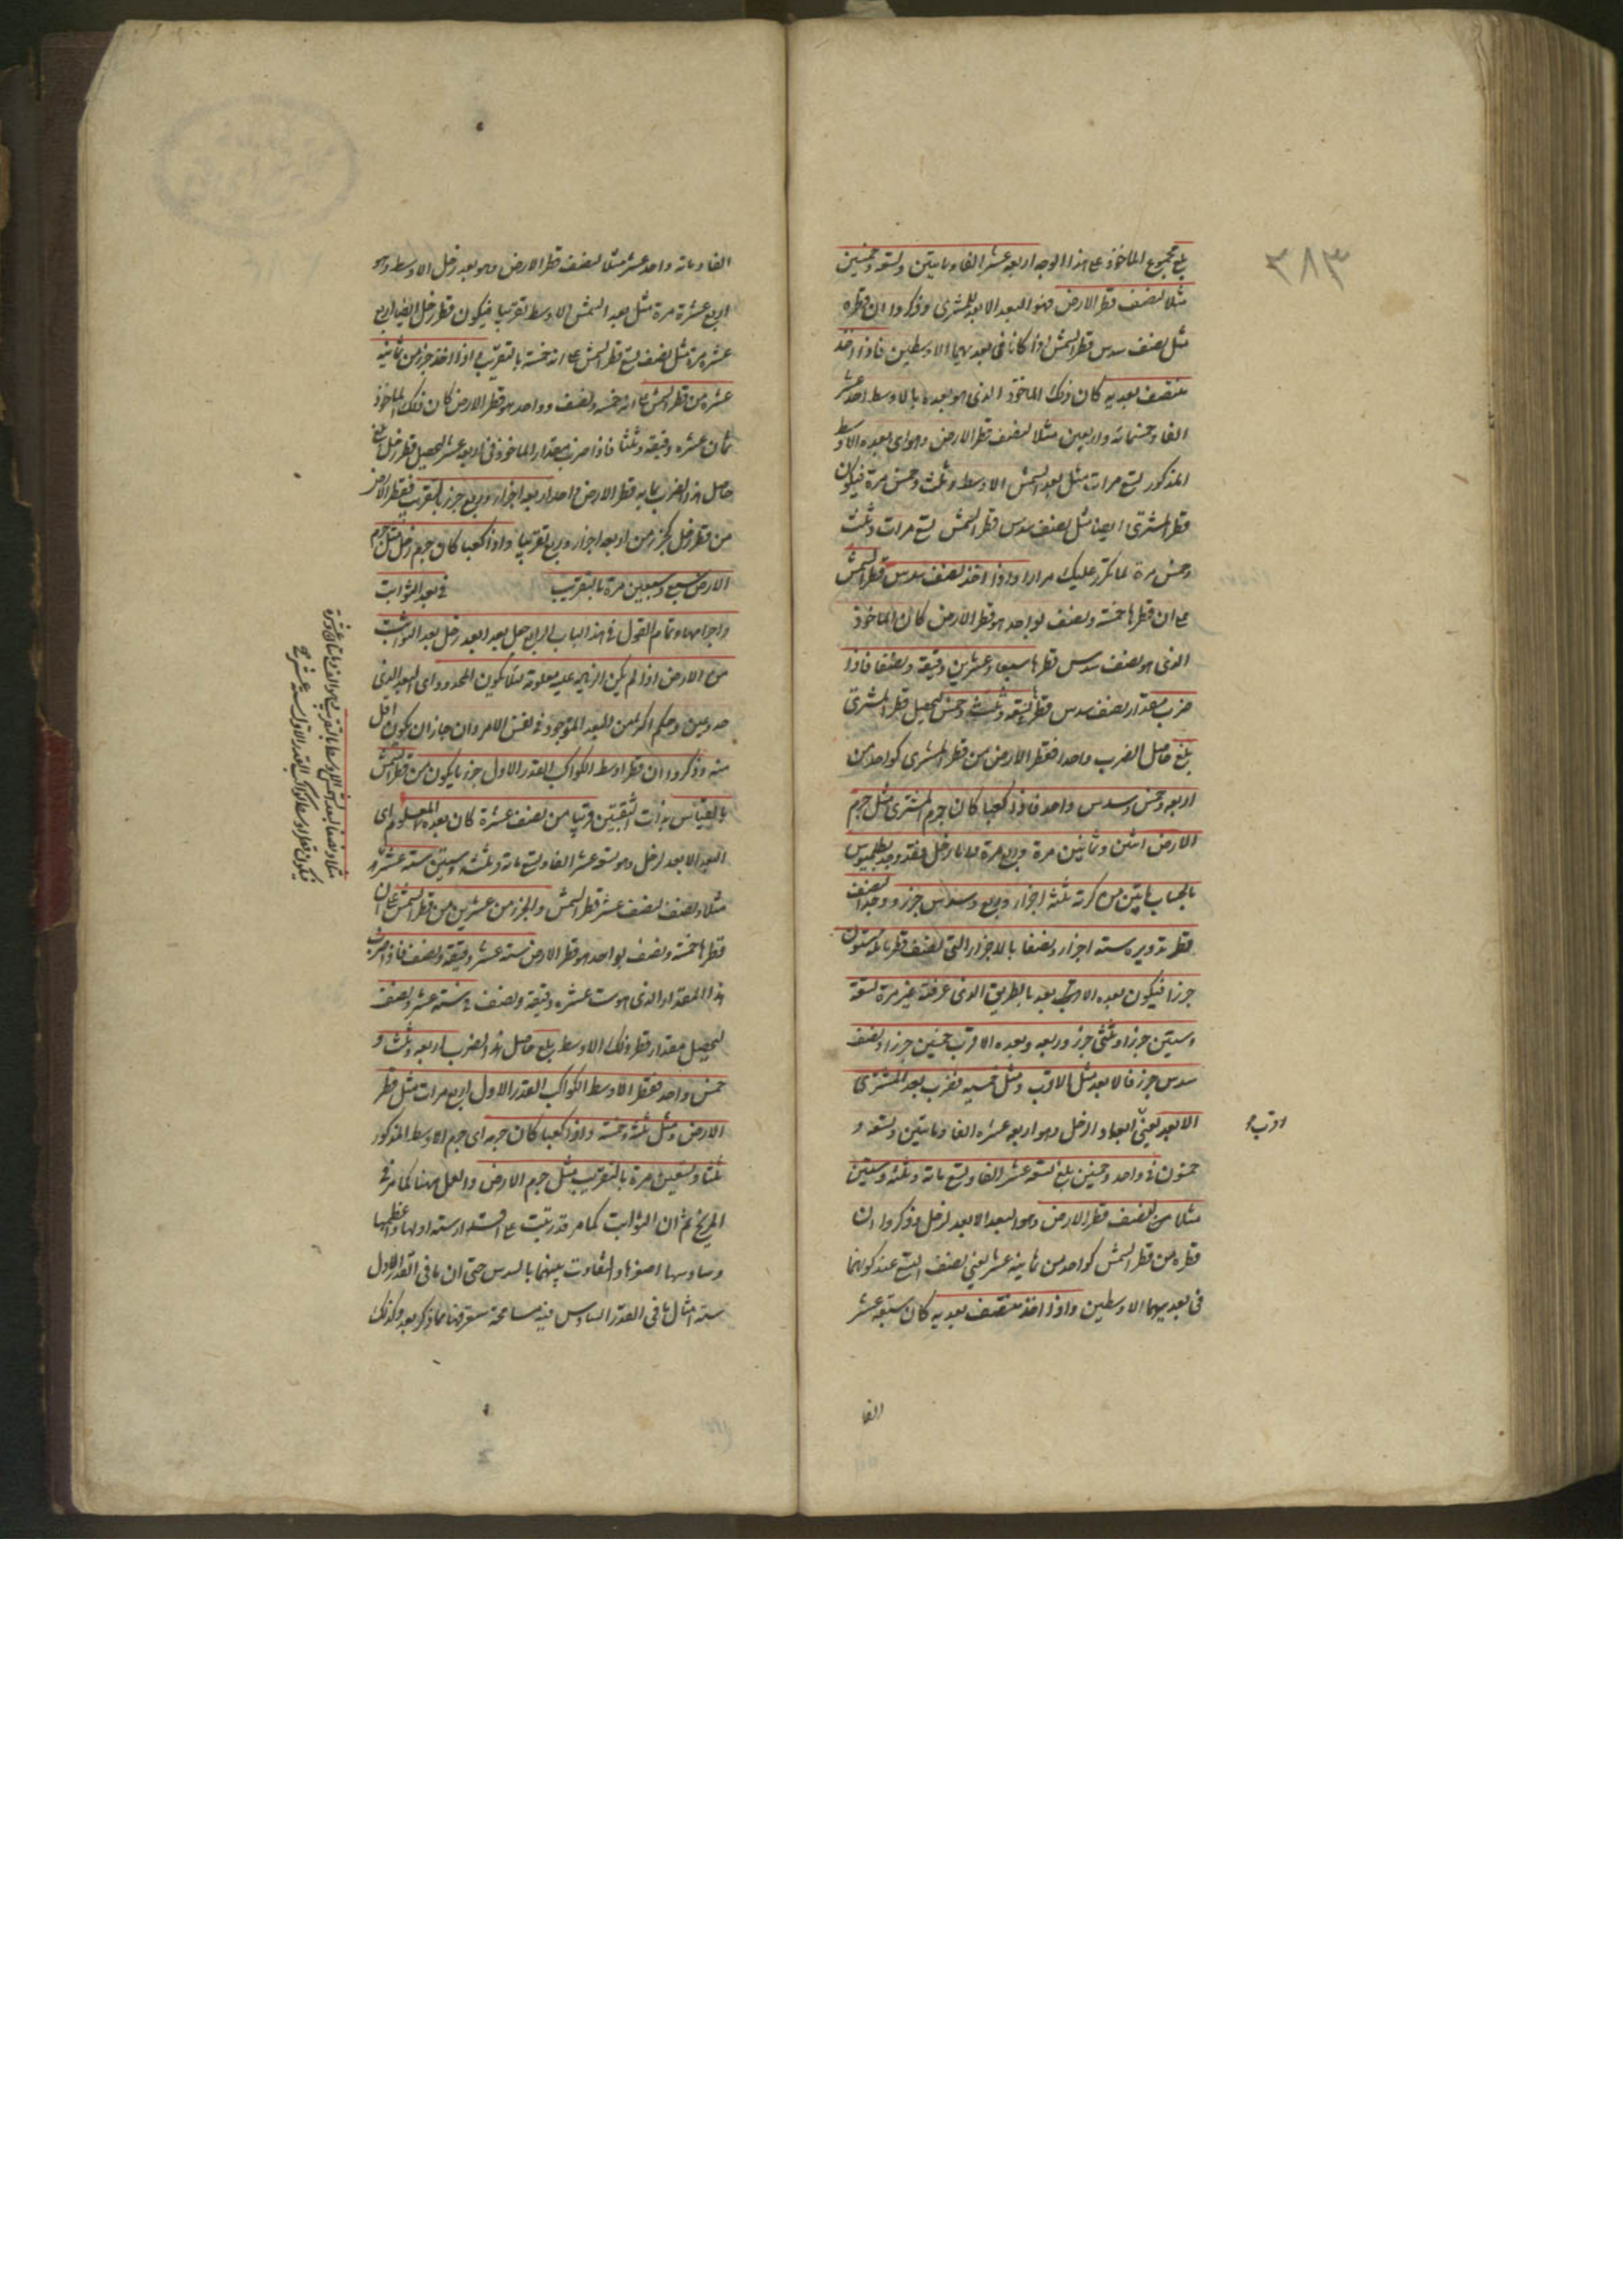 ٣٨٣
بلغ مجموع الماخوذ على هذا الوجه اربعة عشر الفا ومايتين وتسعة وخمسين
مثلا لنصف قطر الارض فهو البعد الابعد للمشترى وذكروا ان قطره
مثل نصف سدس قطر الشمس اذا كانا فى بعديهما الاوسطين فاذا اخذ
منتصف بعديه كان ذلك الماخوذ الذى هو بعده بالاوسط احد عشر
الفا وخمسمائة واربعين مثلا لنصف قطر الارض وهو اى بعده الاوسط
المذكور تسع مرات مثل بعد الشمس الاوسط وثلث وخمس مرة فيكون
قطر المشترى ايضا مثل نصف سدس قطر الشمس تسع مرات وثلث
وخمس مرة لما تكرر عليك مرارا واذا اخذ نصف سدس قطر الشمس
على ان قطرها خمسة ونصف لواحد هو قطر الارض كان الماخوذ
الذى هو نصف سدس قطرها سبعا وعشرين دقيقة ونصفا فاذا
ضرب مقدار نصف سدس قطرها فى تسعة وثلث وخمس لتحصيل قطر المشترى
بلغ حاصل الضرب واحدا فقطر الارض من قطر المشترى كواحد من
اربعة وخمس وسدس واحد فاذا كعبا كان جرم المشترى مثل جرم
الارض اثنين وثمانين مرة وربع مرة واما زحل فقد وجد بطلميوس
بالحساب ما بين مركزيه ثلثة اجزاء وربع وسدس جزء ووجد نصف
قطر تدويره ستة اجزاء ونصفا بالاجزاء التى نصف قطر حامله ستون
جزءا فيكون بعده الابعد بالطريق الذى عرفته غير مرة تسعة
وستين جزءا وثلثى جزء وربعه وبعده الاقرب خمسين جزءا ونصف
سدس جزء فالابعد مثل الاقرب ومثل خمسيه فضرب بعد المشترى
الابعد يعنى ابعاد زحل وهو اربعة عشر الفا ومايتين وتسعة و
اقرب
خمسون فى واحد وخمسين بلغ تسعة عشر الفا وتسع مائة وثلثة وستين
مثلا من لنصف قطر الارض وهو البعد الابعد لزحل وذكروا ان
قطره من قطر الشمس كواحد من ثمانية عشر يعنى نصف التسع عند كونهما
فى بعديهما الاوسطين واذا اخذ منتصف بعديه كان سبعة عشر
الفا
الفا ومائة واحد عشر مثلا لنصف قطر الارض وهو بعد زحل الاوسط وهو
اربع عشرة مرة مثل بعد الشمس الاوسط تقريبا فيكون قطر زحل ايضا اربع
عشرة مرة مثل نصف تسع قطر الشمس على انه خمسة بالتقريب اذا اخذ جزء من ثمانية
عشر من قطر الشمس على انه خمسة ونصف وواحد هو قطر الارض كان ذلك الماخوذ
ثمان عشرة دقيقة وثلثا فاذا ضرب مقدار الماخوذ فى اربعة عشر لتحصيل قطر زحل بلغ
حاصل هذا الضرب بما به قطر الارض واحد اربعة اجزاء وربع جزء بالتقريب فقطر الارض
من قطر زحل كجزء من اربعة اجزاء وربع تقريبا واذا كعبا كان جرم زحل مثل جرم
الارض سبع وسبعين مرة بالتقريب فى بعد الثوابت
واجرامها وتمام القول فى هذا الباب الرابع جعل بعد ابعد زحل بعد الثوابت
من الارض اذا لم يكن الزيادة عليه معلومة لئلا يكون المحدود اى البعد الذى
حد وعين وحكم اكثر من البعد الموجود فى نفس الامر وان جاز ان يكون اقل
منه وذكروا ان قطر اوسط الكواكب القدر الاول جزء يكون من قطر الشمس
بالقياس بذات الثقبتين قريبا من نصف عشرة كان بعده المعلوم اى
البعد الابعد لزحل وهو تسعة عشر الفا وتسع مائة وثلثة وستين ستة عشر مرة
مثلا ونصف لنصف عشر قطر الشمس والجزء من عشرين من قطر الشمس على ان
قطرها خمسة ونصف لواحد هو قطر الارض ستة عشر دقيقة ونصف فاذا ضرب
هذا المقدار الذى هو ست عشرة دقيقة ونصف فى ستة عشر ونصف
لتحصيل مقدار قطر ذلك الاوسط بلغ حاصل هذا الضرب اربعة وثلث و
خمس واحد فقطر الاوسط الكواكب القدر الاول اربع مرات مثل قطر
الارض ومثل ثلثه وخمسه واذا كعبا كان جرمه اى جرم الاوسط المذكور
ثلثا وتسعين مرة بالتقريب مثل جرم الارض والعمل ههنا كما مر فى
المريخ ثم ان الثوابت كما مر قد رتبت على اقدار ستة اولها واعظمها
وسادسها اصغرها والتفاوت بينهما بالسدس حتى ان ما فى القدر الاول
ستة امثال ما فى القدر السادس فيه مسامحة ستعرفها مما يذكر بعد وكذلك
فيكون قطر اوسط كواكب القدر الاول ستة عشر مرة